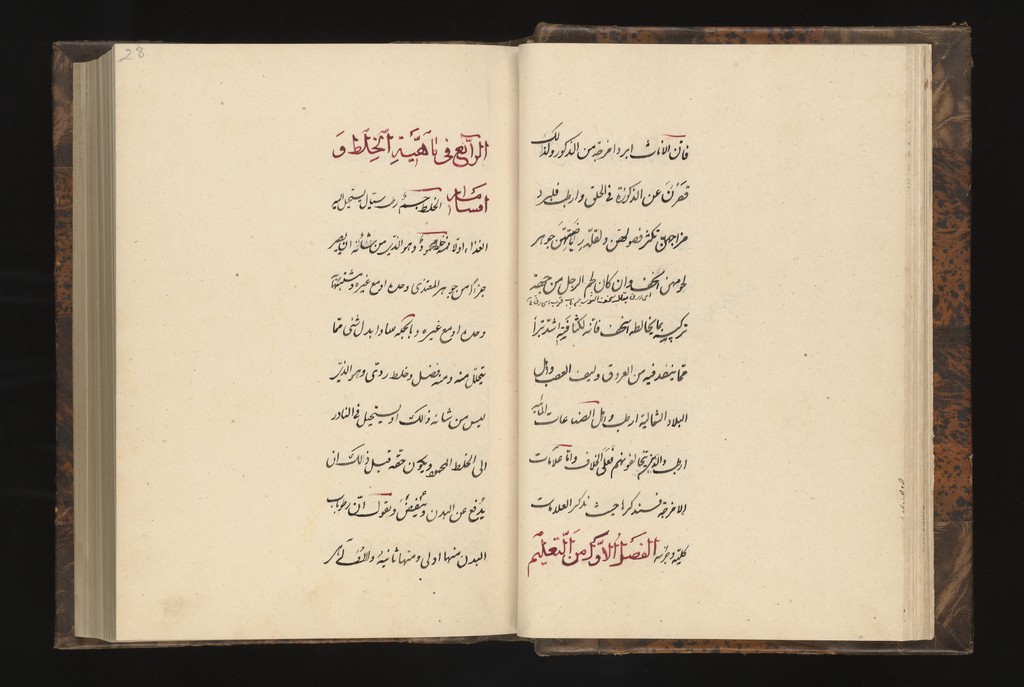 فان الاناث ابرد امزجة من الذكور ولذلك
قصرن عن الذكورة في الخلق وارطب فلبرد
مزاجهن تكثر فضولهن ولقلة رياضتهن جوهر
لحومهن اسخف وان كان لحم الرجل من جهة
تركيبه بما يخالطه اسخف فانه لكثافته اشد تبرأ
مما ينفذ فيه من العروق وليف العصب واهل
البلاد الشمالية ارطب واهل الصناعات المائية
ارطب والذين يخالفونهم فعلى الخلاف واما علامات
الامزجة فسنذكرها حيث نذكر العلامات
كلية وجزئية الفصل الاول من التعليم
28
الرابع في ماهية الخلط و
اقسامه الخلط جسم رطب سيال يستحيل اليه
الغذاء اولا فمنه خلط محمود وهو الذي من شأنه ان يصير
جزءا من جوهر المغتذي وحده او مع غيره ومتشبها به
وحده او مع غيره وبالجملة سادا بدل شئ مما
يتحلل منه ومنه فضل وخلط ردئ وهو الذي
ليس من شانه ذلك او يستحيل في النادر
الى الخلط المحمود ويكون حقه قبل ذلك ان
يدفع عن البدن وينفض ونقول ان رطوبات
البدن منها اولى ومنها ثانية فالاولى هي